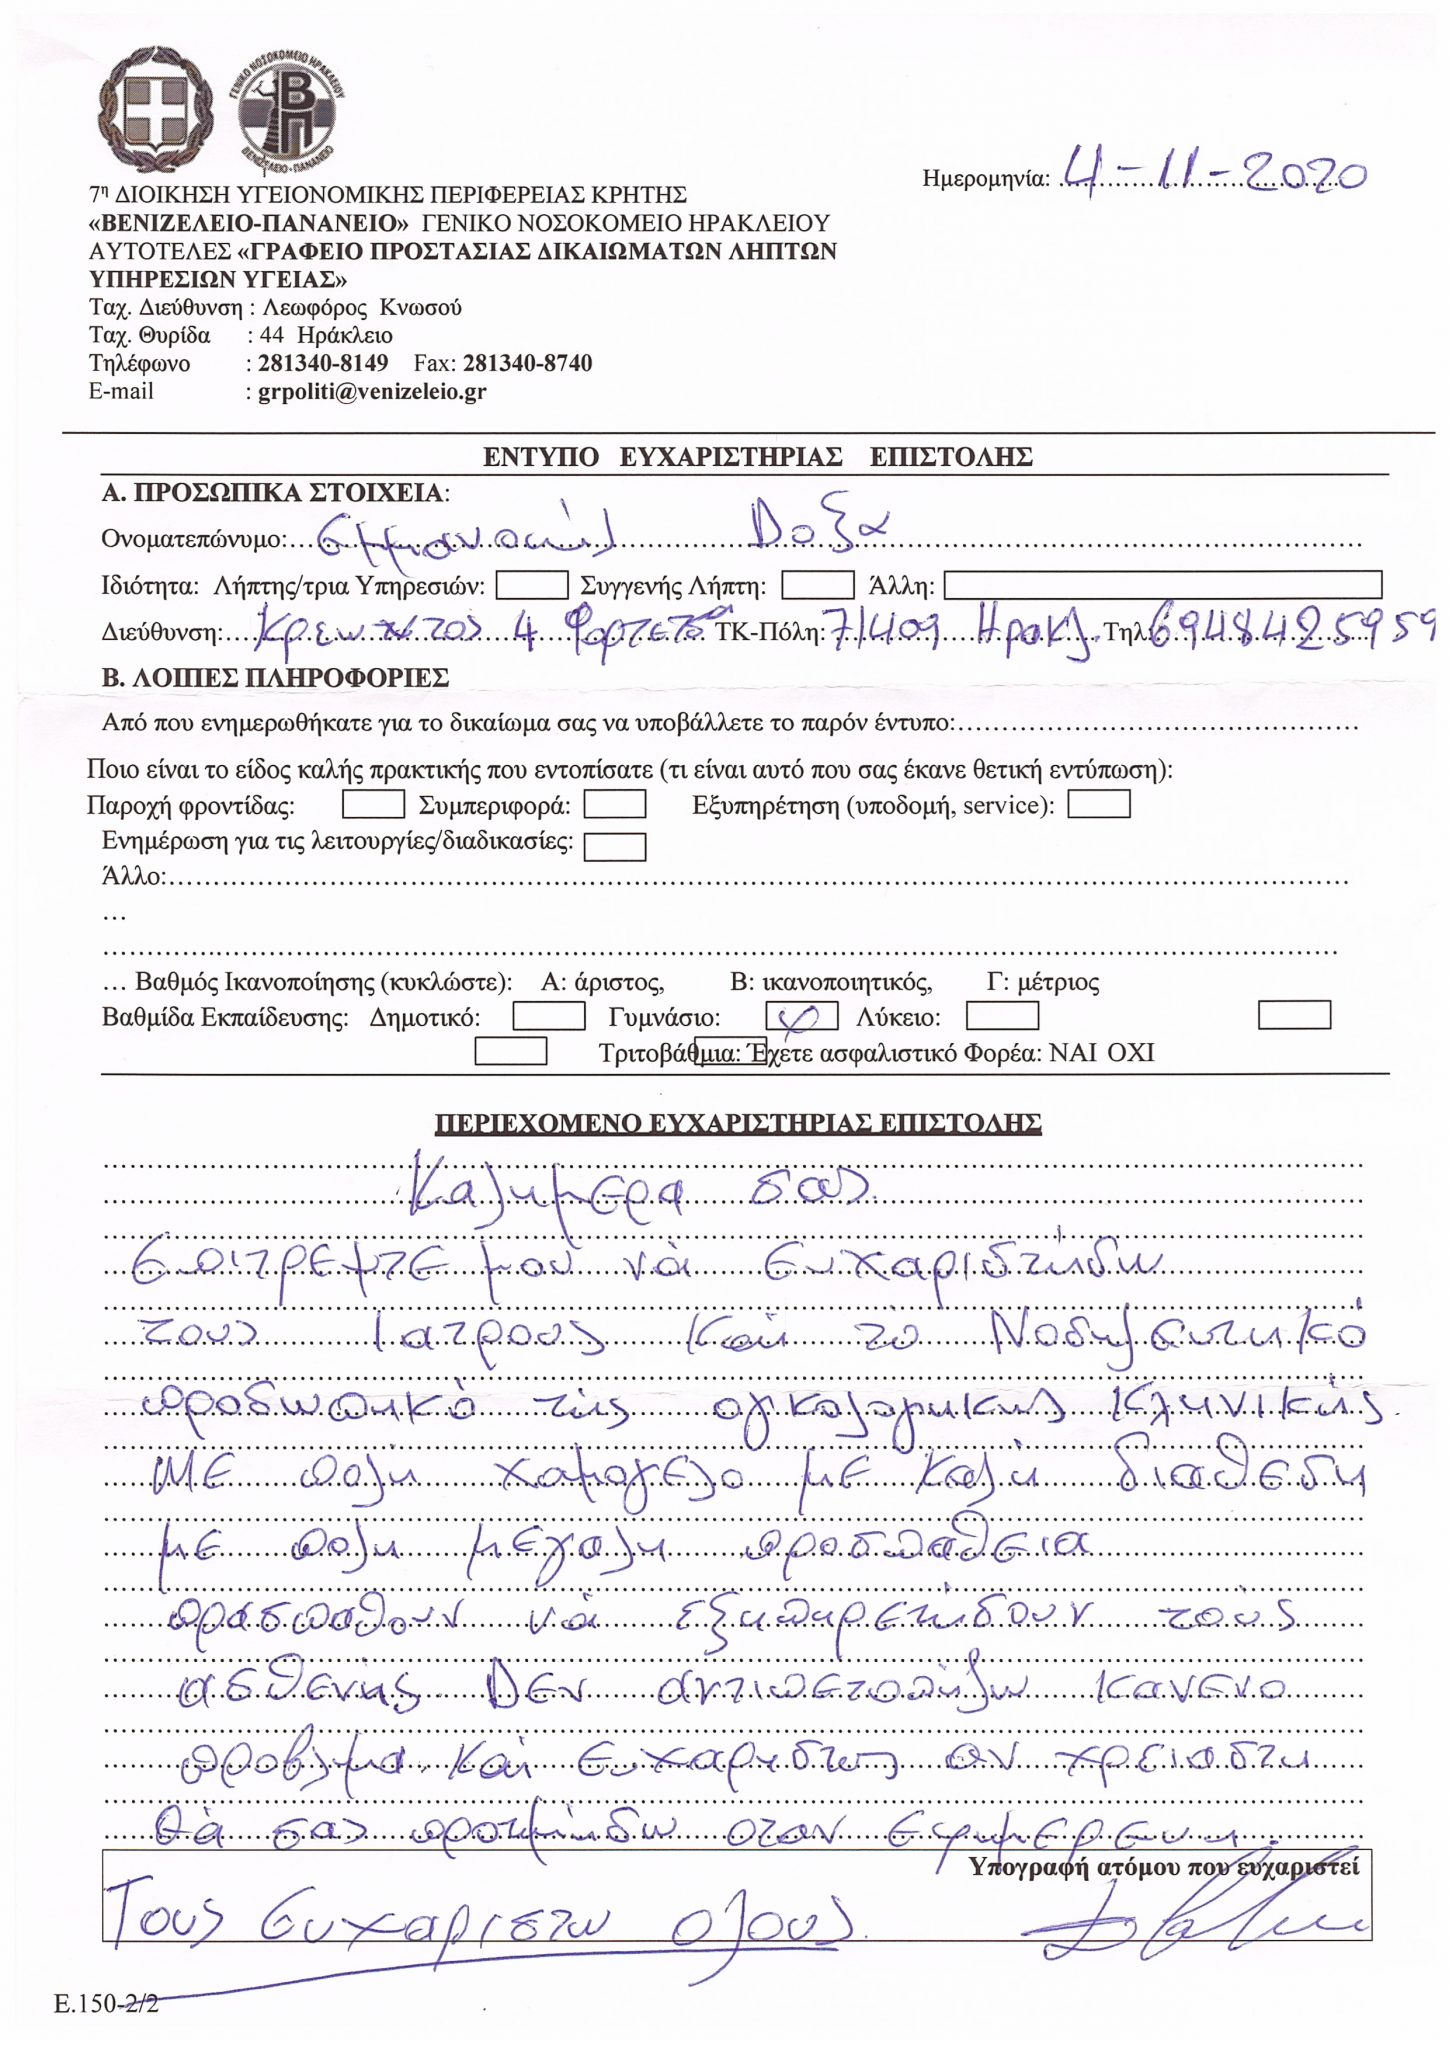 ΓΕΝΙΚΟ ΝΟΣΟΚΟΜΕΙΟ ΗΡΑΚΛΕΙΟΥ
ΒΠ
ΒΕΝΙΖΕΛΕΙΟ-ΠΑΝΑΝΕΙΟ
Ημερομηνία: 4-11-2020
7η ΔΙΟΙΚΗΣΗ ΥΓΕΙΟΝΟΜΙΚΗΣ ΠΕΡΙΦΕΡΕΙΑΣ ΚΡΗΤΗΣ
«ΒΕΝΙΖΕΛΕΙΟ-ΠΑΝΑΝΕΙΟ» ΓΕΝΙΚΟ ΝΟΣΟΚΟΜΕΙΟ ΗΡΑΚΛΕΙΟΥ
ΑΥΤΟΤΕΛΕΣ «ΓΡΑΦΕΙΟ ΠΡΟΣΤΑΣΙΑΣ ΔΙΚΑΙΩΜΑΤΩΝ ΛΗΠΤΩΝ
ΥΠΗΡΕΣΙΩΝ ΥΓΕΙΑΣ»
Ταχ. Διεύθυνση : Λεωφόρος Κνωσού
Ταχ. Θυρίδα : 44 Ηράκλειο
Τηλέφωνο : 281340-8149 Fax: 281340-8740
E-mail : grpoliti@venizeleio.gr
ΕΝΤΥΠΟ ΕΥΧΑΡΙΣΤΗΡΙΑΣ ΕΠΙΣΤΟΛΗΣ
Α. ΠΡΟΣΩΠΙΚΑ ΣΤΟΙΧΕΙΑ:
Ονοματεπώνυμο: Δοξα
Ιδιότητα: Λήπτης/τρια Υπηρεσιών: Συγγενής Λήπτη: Άλλη:
Διεύθυνση: 4 ΤΚ-Πόλη: 71409 Ηρακλ. Τηλ: 6948425959
Β. ΛΟΙΠΕΣ ΠΛΗΡΟΦΟΡΙΕΣ
Από που ενημερωθήκατε για το δικαίωμα σας να υποβάλλετε το παρόν έντυπο:
Ποιο είναι το είδος καλής πρακτικής που εντοπίσατε (τι είναι αυτό που σας έκανε θετική εντύπωση):
Παροχή φροντίδας: Συμπεριφορά: Εξυπηρέτηση (υποδομή, service):
Ενημέρωση για τις λειτουργίες/διαδικασίες:
Άλλο:
…
… Βαθμός Ικανοποίησης (κυκλώστε): Α: άριστος, Β: ικανοποιητικός, Γ: μέτριος
Βαθμίδα Εκπαίδευσης: Δημοτικό: Γυμνάσιο: Λύκειο:
Τριτοβάθμια: Έχετε ασφαλιστικό Φορέα: ΝΑΙ ΟΧΙ
ΠΕΡΙΕΧΟΜΕΝΟ ΕΥΧΑΡΙΣΤΗΡΙΑΣ ΕΠΙΣΤΟΛΗΣ
Καλημερα σας
Επιτρεψτε μου νά ευχαριστήσω
τους Ιατρους καί το Νοσηλευτικό
προσωπικό τής ογκολογικης Κληνικής.
ΜΕ πολή χαμογελο με καλή διαθεση
με πολη μεγαλη προσπαθεια
πρασπαθουν νά εξηπηρετήσουν τούς
ασθενής Δεν κανενα
προβλημα καί ευχαρηστως αν χρειαστη
θά σας προτμήσω οταν εφημερευη.
Υπογραφή ατόμου που ευχαριστεί
Τους Ευχαριστω ολους
Ε.150-2/2